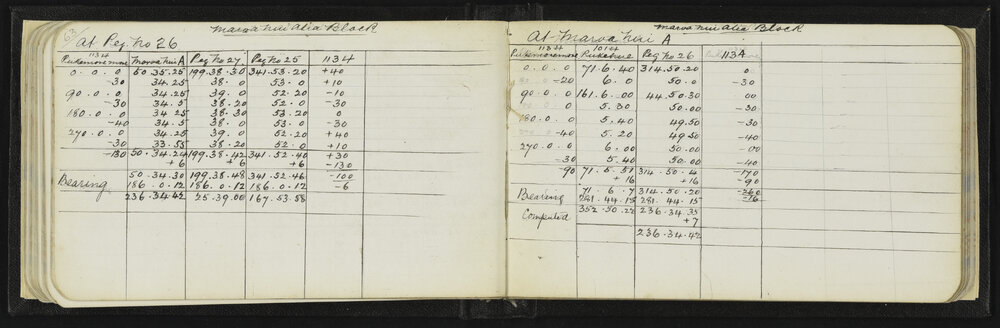 63
Maroa nui Atia Block
At Peg. No 26
1134
Pukemoremore Maroa Nui A Peg No 27. Peg. No 25 1134
0.0.0 50.35.25 199.38.30 341.53.20 +40
-30 34.25 38.0 53.0 +10
90.0.0 34.25 39.0 52.20 -10
-30 34.5 38.20 52.0 -30
180.0.0 34.25 38.30 53.20 0
-40 34.5 38.0 53.0 -30
270.0.0 34.25 39.0 52.20 +40
-30 33.55 38.20 52.0 +10
-130 50.34.24 199.38.42 341.52.40 +30
+6 +6 +6 -130
50.34.30 199.38.48 341.52.46 -100
Bearing 186.0.12 186.0.12 186.0.12 -6
236.34.42 25.39.00 167.53.58
Maroa nui Atia Block
At Maroa Nui A
1134
Pukemoremore Pukekura Peg No 26 1134
0.0.0 71.6.40 314.50.20 0
-20 6.0 50.0 -30
90.0.0 161.6.00 44.50.30 00
5.30 50.00 -30
180.0.0 5.40 49.50 -30
-40 5.20 49.50 -40
270.0.0 6.00 50.00 -00
-30 5.40 50.00 -40
-90 71.5.51 314.50.4 -170
+16 +16 -90
71.6.7 314.50.20 -260
Bearing 281.44.15 281.44.15 -16
352.50.22 236.34.35
Computed +7
236.34.42